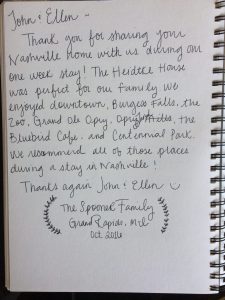 John & Ellen ~
Thank you for sharing your
Nashville home with us during our
one week stay! The Heidtke House
was perfect for our family we
enjoyed downtown, Burgess Falls, the
Zoo, Grand Ole Opry, the
Bluebird Cafe, and Centennial Park.
We recommend all of those places
during a stay in Nashville!
Thanks again John & Ellen
The Spooner Family
Grand Rapids, MI
Oct. 2016